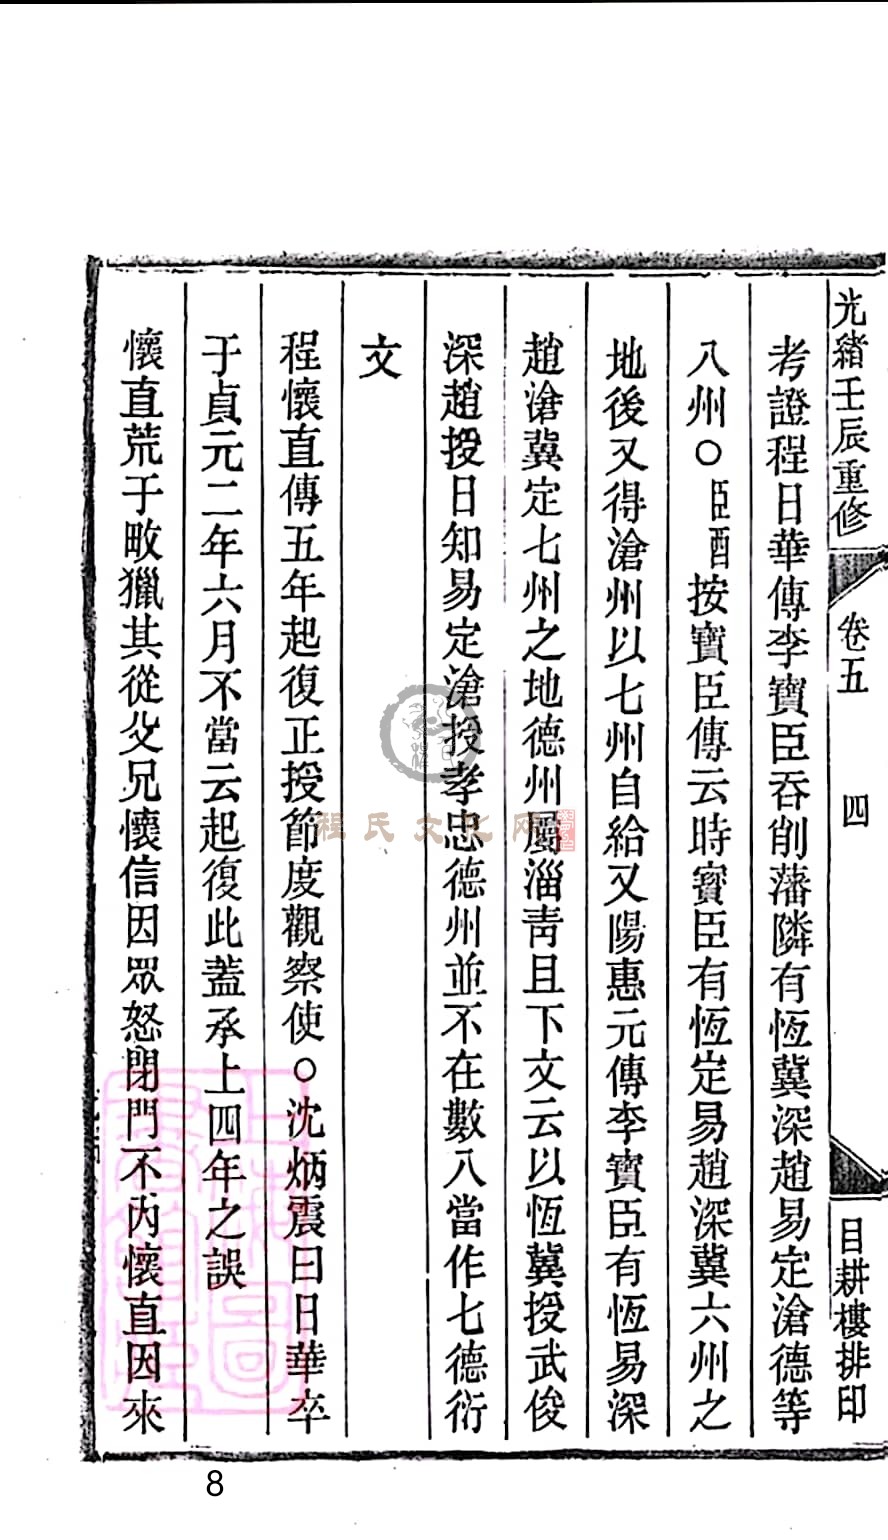 光緒壬辰重修
卷五
四
目耕樓排印
考證程日華傳李寶臣吞削藩隣有恆冀深趙易定滄德等
八州○臣酉按寶臣傳云時寶臣有恆定易趙深冀六州之
地後又得滄州以七州自給又陽惠元傳李寶臣有恆易深
趙滄冀定七州之地德州屬淄靑且下文云以恆冀授武俊
深趙授日知易定滄授孝忠德州並不在數八當作七德衍
文
程懷直傳五年起復正授節度觀察使○沈炳震曰日華卒
于貞元二年六月不當云起復此蓋承上四年之誤
懷直荒于畋獵其從父兄懷信因眾怒閉門不內懷直因來
程氏文化网
8